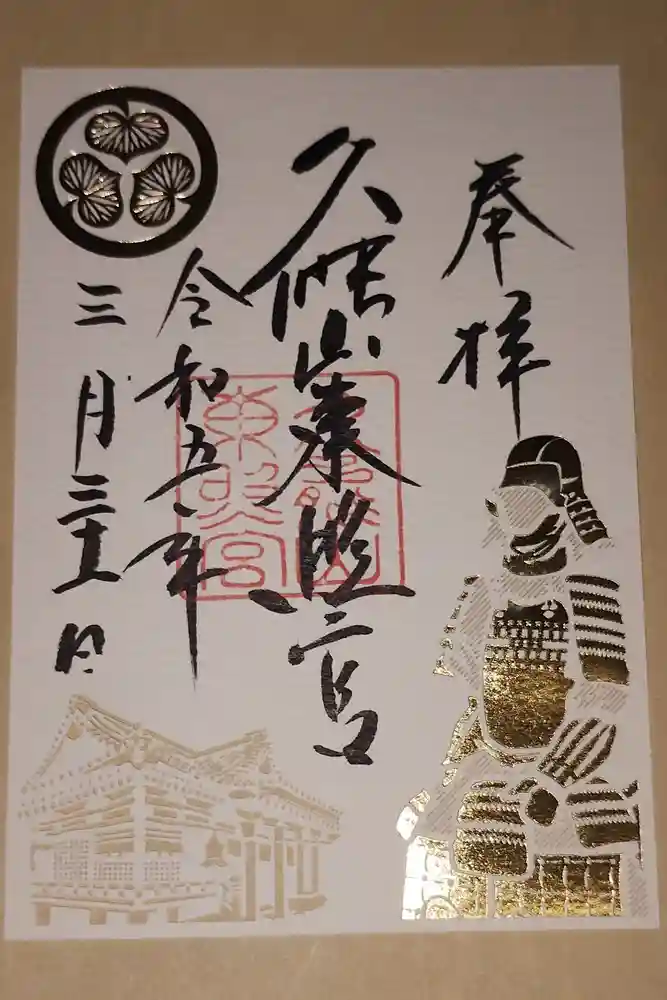 奉拝
久能山東照宮
令和五年
三月三十一日
久能山
東照宮